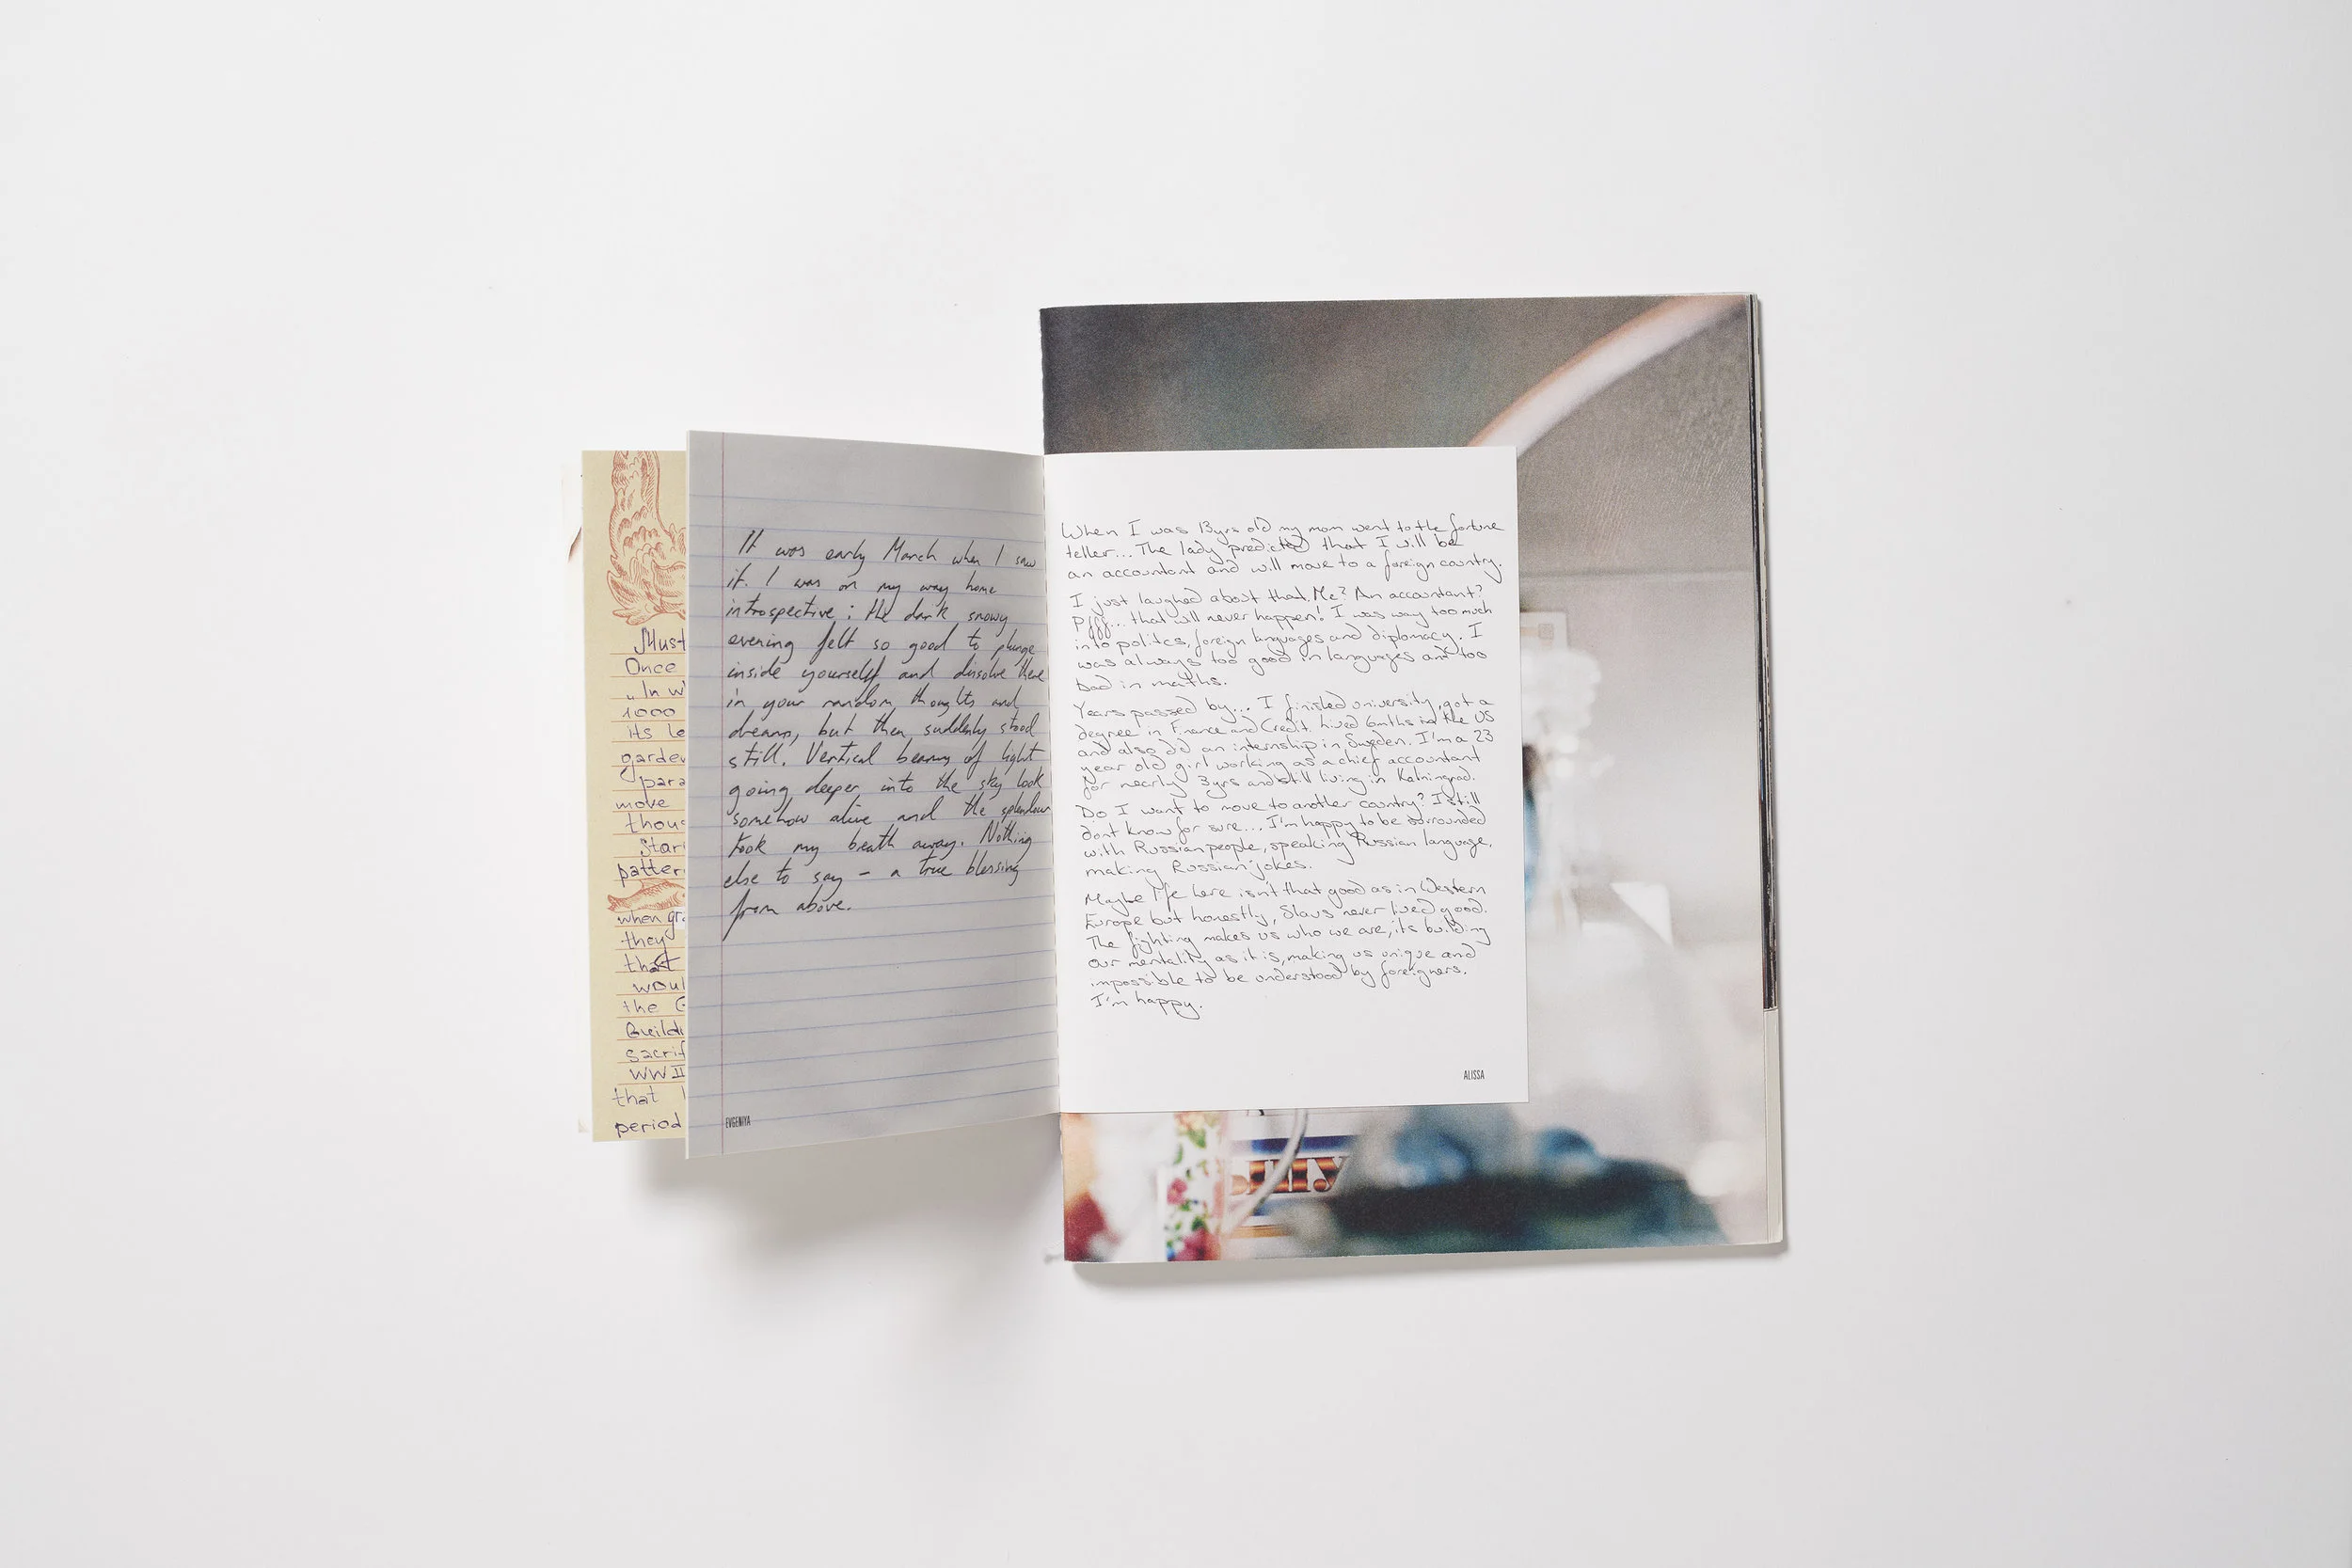 Must
Once
„In w
1000
its le
garden
para
move
thous
Star
patter
when gr
they
that
woul
the G
Buildi
sacrif
WWII
that
period
It was early March when I saw
it. I was on my way home
introspective: the dark snowy
evening felt so good to plunge
inside yourself and dissolve there
in your random thoughts and
dreams, but then suddenly stood
still. Vertical beams of light
going deeper into the sky look
somehow alive and the splendour
took my breath away. Nothing
else to say – a true blessing
from above.
EVGENIYA
When I was 13yrs old my mom went to the fortune
teller... The lady predicted that I will be
an accountant and will move to a foreign country.
I just laughed about that. Me? An accountant?
Pfff... that will never happen! I was way too much
into politics, foreign languages and diplomacy. I
was always too good in languages and too
bad in maths.
Years passed by... I finished university, got a
degree in Finance and Credit. Lived 6mths in the US
and also did an internship in Sweden. I'm a 23
year old girl working as a chief accountant
for nearly 3yrs and still living in Kaliningrad.
Do I want to move to another country? I still
dont know for sure... I'm happy to be surrounded
with Russian people, speaking Russian language,
making Russian jokes.
Maybe life here isn't that good as in Western
Europe but honestly, Slavs never lived good.
The fighting makes us who we are, its building
our mentality as it is, making us unique and
impossible to be understood by foreigners.
I'm happy.
ALISSA